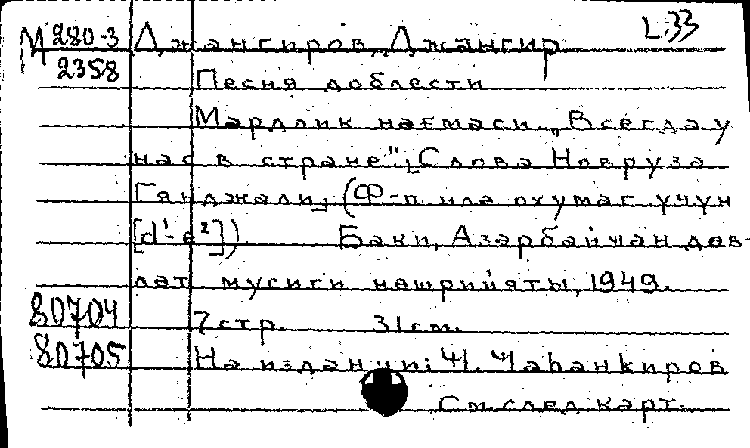 М 280-3 Джангиров, Джангир L.33
2358 Песня доблести
Мардлик нағмаси „Всегда у
нас в стране", Слова Новруза
Гянджали, (Ф-п ила охумаг үчүн
[d¹-e²]) Баки, Азарбайҹан дөв-
лат мусиги нашрийяты, 1949.
80704 7 стр. 31 см.
80705 На издании: Ҹ. Ҹаһанҝиров
См. след. карт.